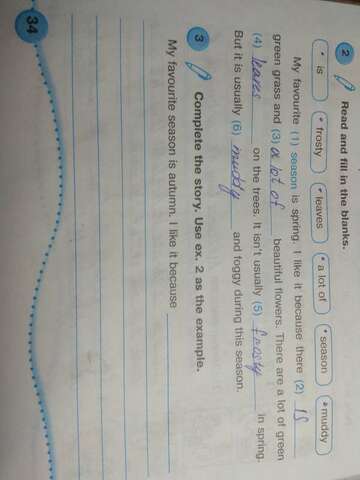 2 Read and fill in the blanks.
* is * frosty * leaves * a lot of * season * muddy
My favourite (1) season is spring. I like it because there (2) is
green grass and (3) a lot of beautiful flowers. There are a lot of green
(4) leaves on the trees. It isn't usually (5) frosty in spring.
But it is usually (6) muddy and foggy during this season.
3 Complete the story. Use ex. 2 as the example.
My favourite season is autumn. I like it because
34